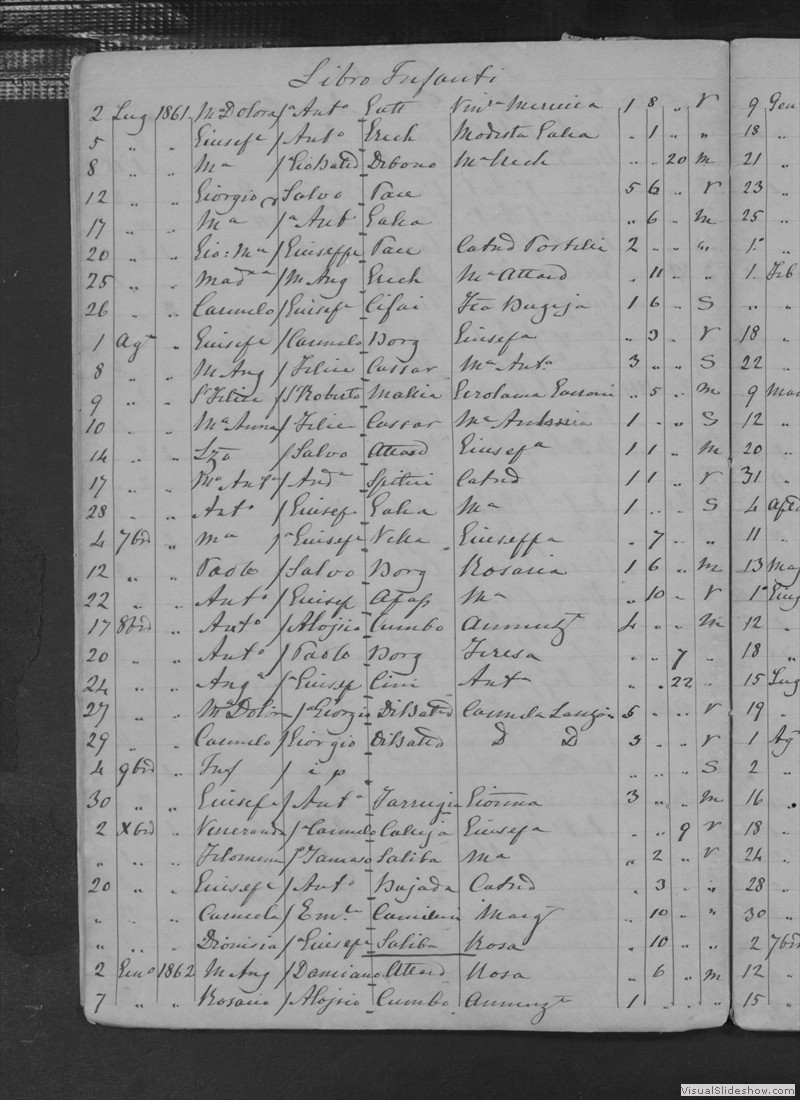 Libro Infanti
2 Lug 1861 Ma Dolora / a Anto Gutt Vinra 1 8 .. V 9 Gen
5 .. .. Giusepe / Anto Grech Modesta Galea . 1 .. .. 18 ..
8 .. .. Ma / a Gio Batta Dibono Ma Grech .. .. 20 m 21 ..
12 .. .. Giorgio / Salvo Pace 5 6 .. V 23 ..
17 .. .. Ma / a Anto Galea .. 6 .. m 25 ..
20 .. .. Gio: Ma / Giuseppe Pace Catnd Portelli 2 .. .. .. 1o ..
25 .. .. Madna / M Ang Grech Ma Attard . 11 .. .. 1 Feb
26 .. .. Carmelo / Giuspe Cifai Bugeja 1 6 .. S .. ..
1 Ago .. Giusepe / Carmelo Borg Giusepa .. 3 .. V 18 ..
8 .. .. M Ang / Felice Cassar Ma Anta 3 .. .. S 22 ..
9 .. .. Sr Felice / Sr Roberto Mallia Gerolama .. 5 .. m 9 Mar
10 .. .. Ma Anna / Felice Cassar Ma 1 .. .. S 12 ..
14 .. .. Lzo / Salvo Attard Giusepa 1 1 .. m 20 ..
17 .. .. Ma Anta / Anda Spiteri Catnd 1 1 .. V 31 ..
28 .. .. Anto / Giusepe Galea Ma 1 .. .. S 4
4 7bre .. Ma / a Giusepe Vella Giuseppa . 7 .. .. 11 ..
12 .. .. Paolo / Salvo Borg Rosaria 1 6 .. m 13 Mag
22 .. .. Anto / Giusep Ma .. 10 .. V 1o Giug
17 8bre .. Anto / Alojsio Cumbo Annunzta 4 .. .. m 12 ..
20 .. .. Anto / Paolo Borg Teresa . .. 7 .. 18 ..
24 .. .. Anga / a Giusep Cini Anta .. .. 22 .. 15 Lug
27 .. .. Ma Dolora / a Giorgio DiBatta Carmela 5 .. .. V 19 ..
29 .. .. Carmelo / Giorgio DiBatta D D 3 .. .. V 1 Ag
4 9bre .. Inf / i p .. .. .. S 2 ..
30 .. .. Giusepe / Anto Farrugia Gionna 3 .. .. m 16 ..
2 Xbre .. Veneranda / a Carmelo Calleja Giusepa .. .. 9 V 18 ..
.. .. .. Filomena / a Tomaso Saliba Ma .. 2 .. V 24 ..
20 .. .. Giusepe / Anto Bajada Catnd . 3 .. .. 28 ..
.. .. .. Carmela / Emle Camilleri Margt .. 10 .. .. 30 ..
.. .. .. Dionisia / a Giusepe Saliba Rosa . 10 .. .. 2 7bre
2 Geno 1862 M Ang / Damiano Attard Rosa .. 6 .. m 12 ..
7 .. .. Rosario / Alojsio Cumbo Annunzta 1 .. .. .. 15 ..
VisualSlideshow.com